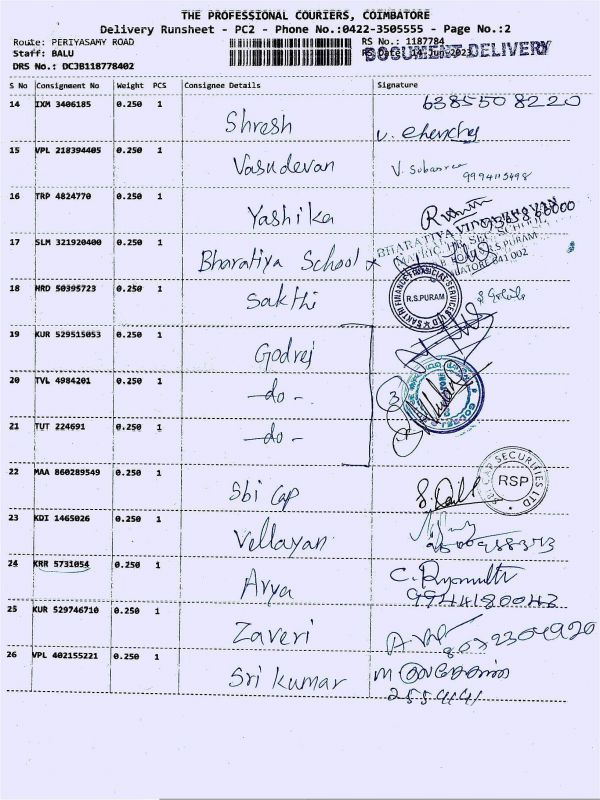 THE PROFESSIONAL COURIERS, COIMBATORE
Delivery Runsheet - PC2 - Phone No.:0422-3505555 - Page No.:2
Route: PERIYASAMY ROAD
RS No.: 1187784
Staff: BALU
RS Date: 14-Jun-2023
DOCUMENT DELIVERY
DRS No.: DC3B118778402
S No Consignment No Weight PCS Consignee Details Signature
14 IXM 3406185 0.250 1 Shresh 6385508220
15 VPL 218394405 0.250 1 Vasudevan V. Subasree
16 TRP 4824770 0.250 1 Yashika
17 SLM 321920400 0.250 1 Bharatiya School
BHARATIYA VIDYA BHAVAN
MATRIC. HR. SEC. SCHOOL
R.S.PURAM
18 NRD 50395723 0.250 1 Sakthi
SAKTHI FINANCE FINANCIAL SERVICES LTD
R.S.PURAM
19 KUR 529515053 0.250 1 Godrej
20 TVL 4984201 0.250 1 -do-
21 TUT 224691 0.250 1 -do-
22 MAA 860289549 0.250 1 Sbi Cap
SBI CAP SECURITIES LTD
RSP
23 KDI 1465026 0.250 1 Vellayan
24 KRR 5731054 0.250 1 Arya
9944180043
25 KUR 529746710 0.250 1 Zaveri
26 VPL 402155221 0.250 1 Sri kumar
2554141